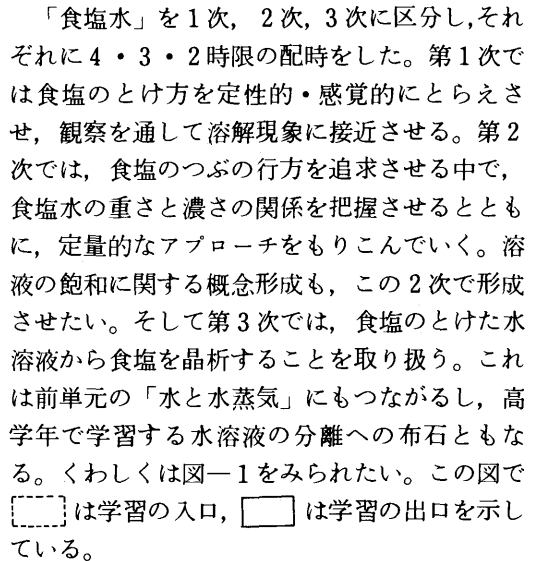 「食塩水」を1次，2次，3次に区分し，それ
ぞれに4・3・2時限の配時をした。第1次で
は食塩のとけ方を定性的・感覚的にとらえさ
せ，観察を通して溶解現象に接近させる。第2
次では，食塩のつぶの行方を追求させる中で，
食塩水の重さと濃さの関係を把握させるととも
に，定量的なアプローチをもりこんでいく。溶
液の飽和に関する概念形成も，この2次で形成
させたい。そして第3次では，食塩のとけた水
溶液から食塩を晶析することを取り扱う。これ
は前単元の「水と水蒸気」にもつながるし，高
学年で学習する水溶液の分離への布石ともな
る。くわしくは図―1をみられたい。この図で
は学習の入口，は学習の出口を示し
ている。